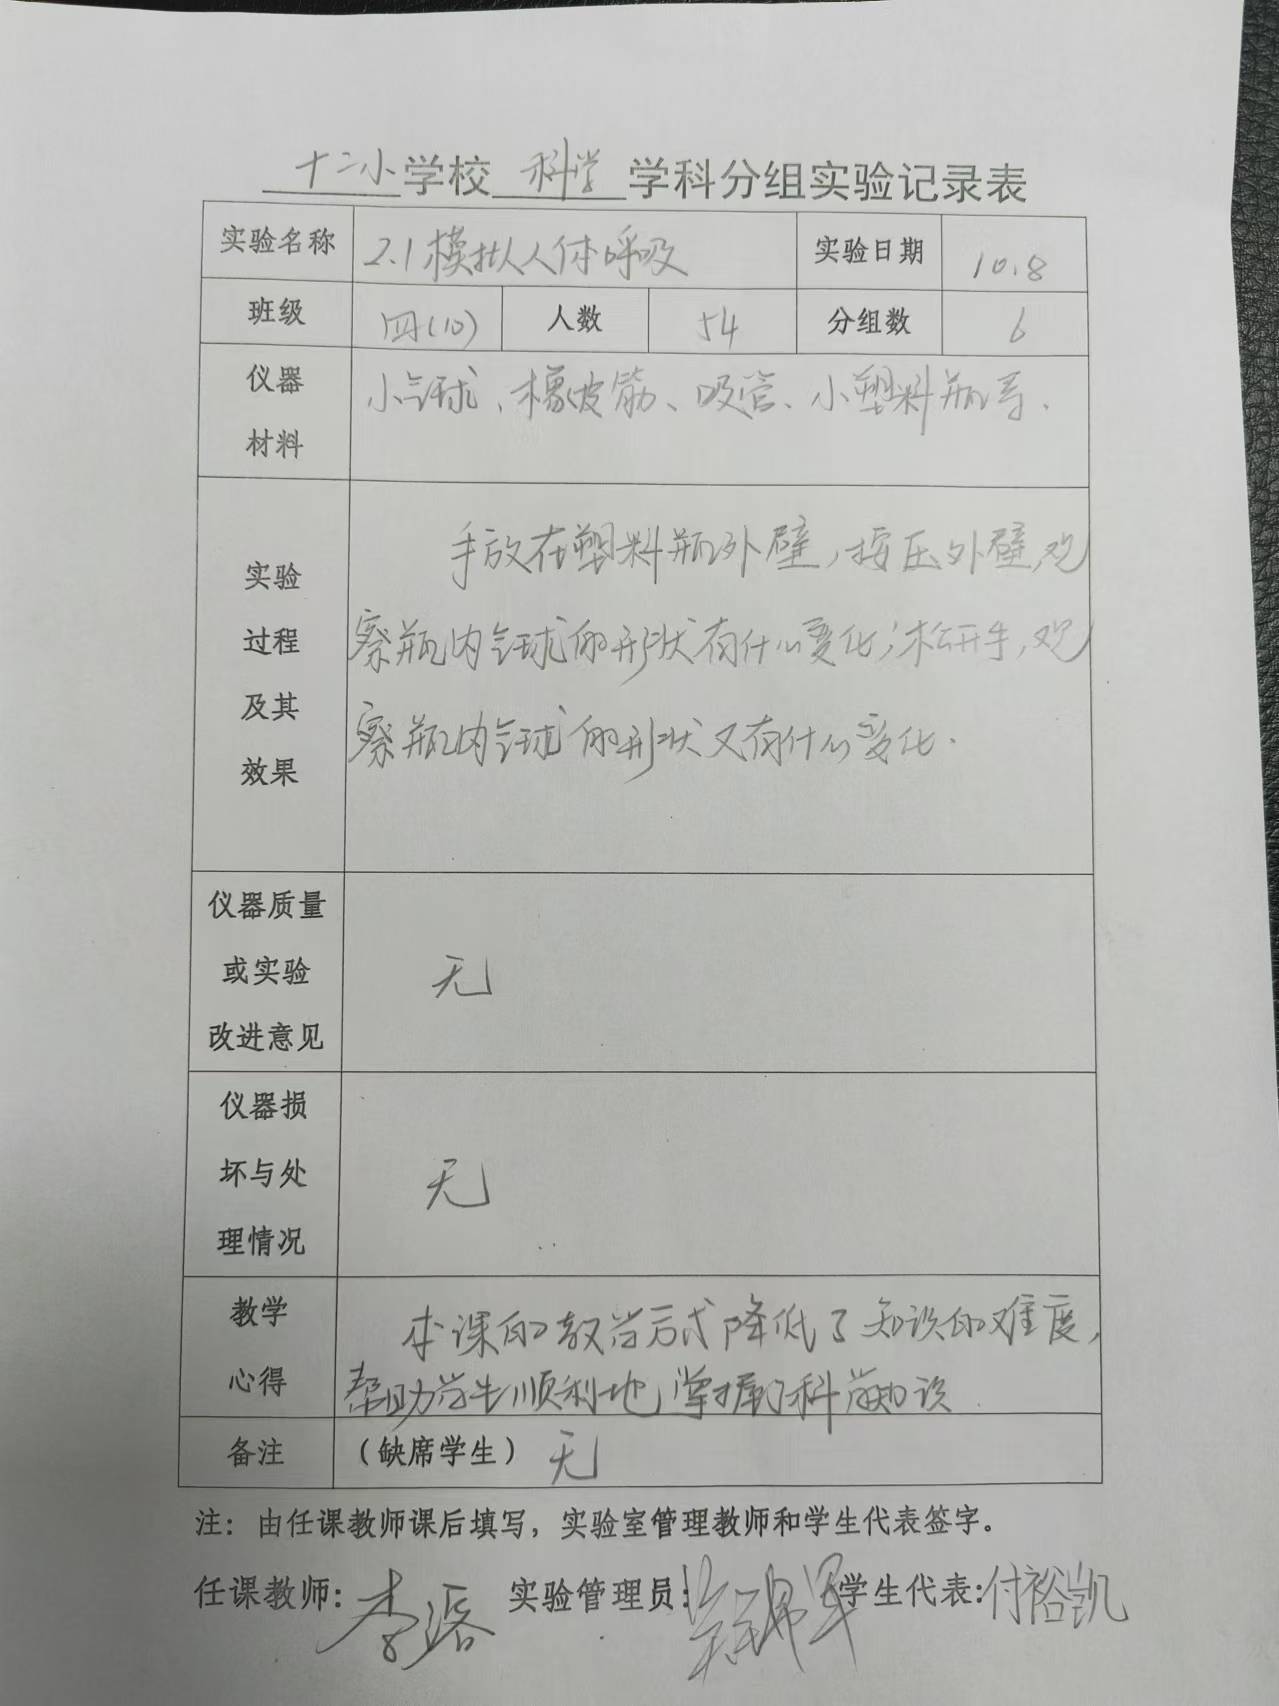 十二小学校 科学 学科分组实验记录表
实验名称 2.1模拟人体呼吸 实验日期 10.8
班级 四(10) 人数 54 分组数 6
仪器 小气球、橡皮筋、吸管、小塑料瓶等.
材料
手放在塑料瓶外壁,按压外壁,观
实验
过程 察瓶内气球的形状有什么变化;松开手,观
及其 察瓶内气球的形状又有什么变化.
效果
仪器质量
或实验 无
改进意见
仪器损
坏与处 无
理情况
教学 本课的教学方式降低了知识的难度,
心得 帮助学生顺利地掌握了科学知识
备注 (缺席学生) 无
注:由任课教师课后填写,实验室管理教师和学生代表签字。
任课教师: 李 实验管理员: 学生代表:付裕凯